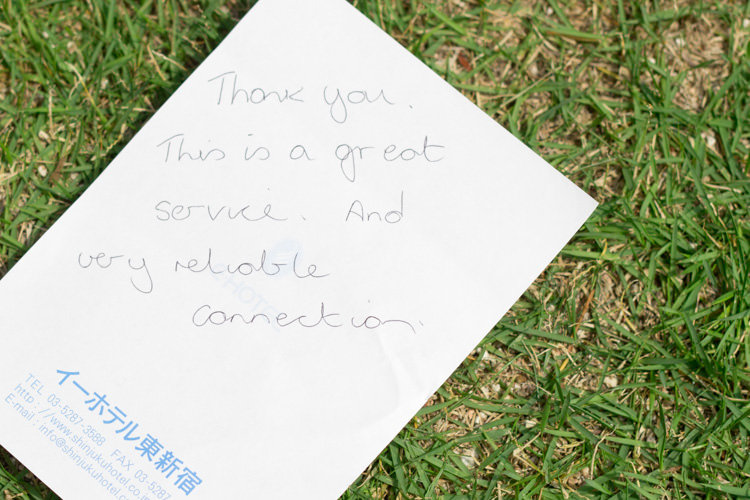 Thank you.
This is a great
service. And
very reliable
connection.
イーホテル東新宿
TEL 03-5287-3588 FAX 03-5287
http://www.shinjukuhotel.co.jp
E-mail : info@shinjukuhotel.co
HOTEL